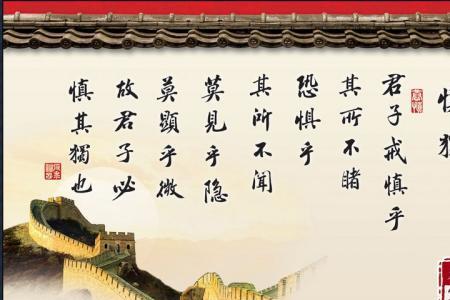 君子戒慎乎
其所不睹
恐惧乎
其所不聞
莫見乎隐
莫顯乎微
故君子必
慎其獨也